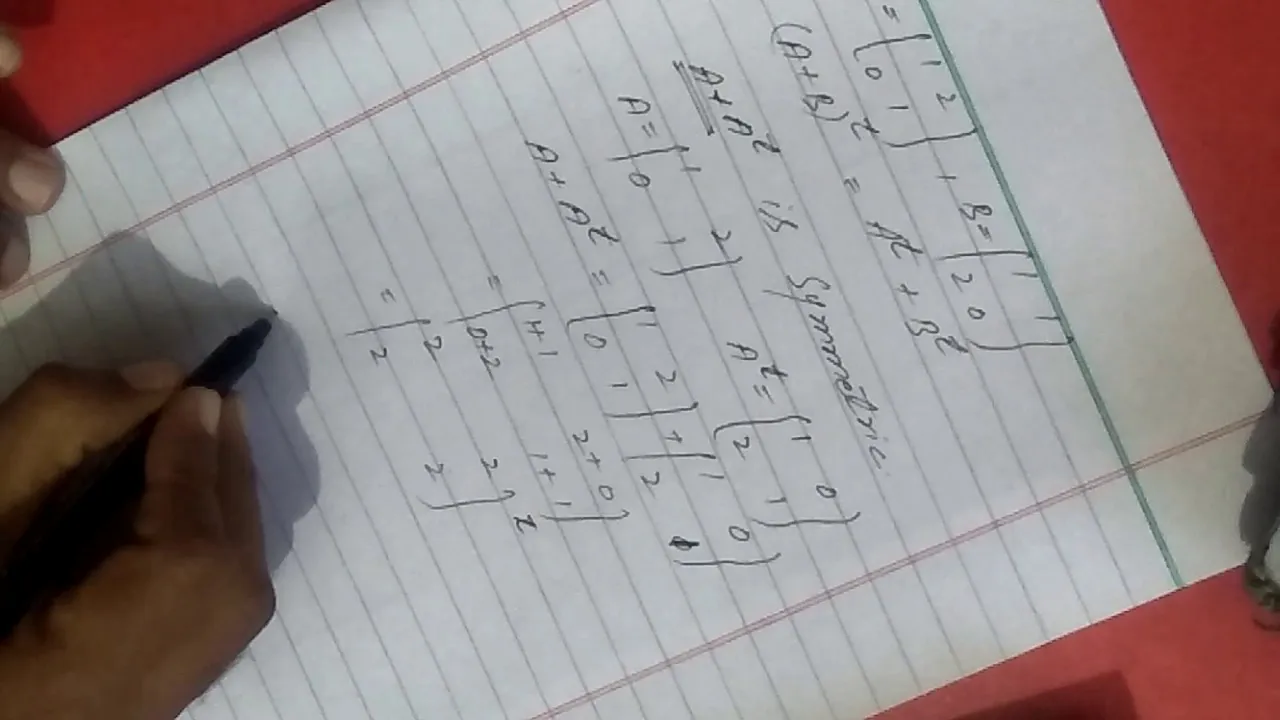 = [1 2 , B = [1 1
0 1] 2 0]
(A+B)^t = A^t + B^t
A + A^t is Symmetric.
A = [1 2 A^t = [1 0
0 1] 2 1]
A + A^t = [1 2 + [1 0
0 1] 2 1]
= [1+1 2+0
0+2 1+1]
= [2 2
2 2]